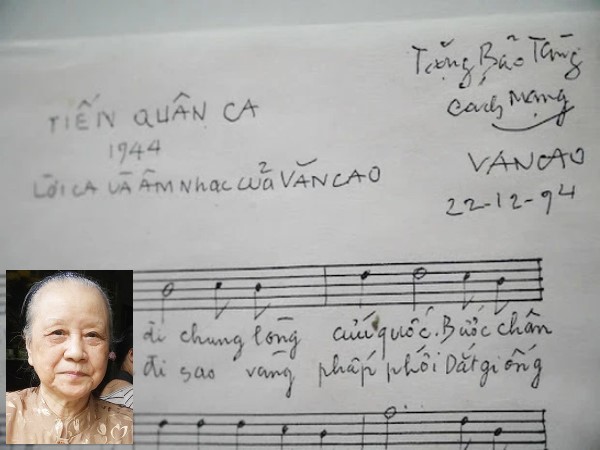 TIẾN QUÂN CA
1944
LỜI CA VÀ ÂM NHẠC CỦA VĂN CAO
Tặng Bảo Tàng
Cách Mạng
VĂN CAO
22-12-94
đi chung lòng cứu quốc. Bước chân
đi sao vàng phấp phới Dắt giống